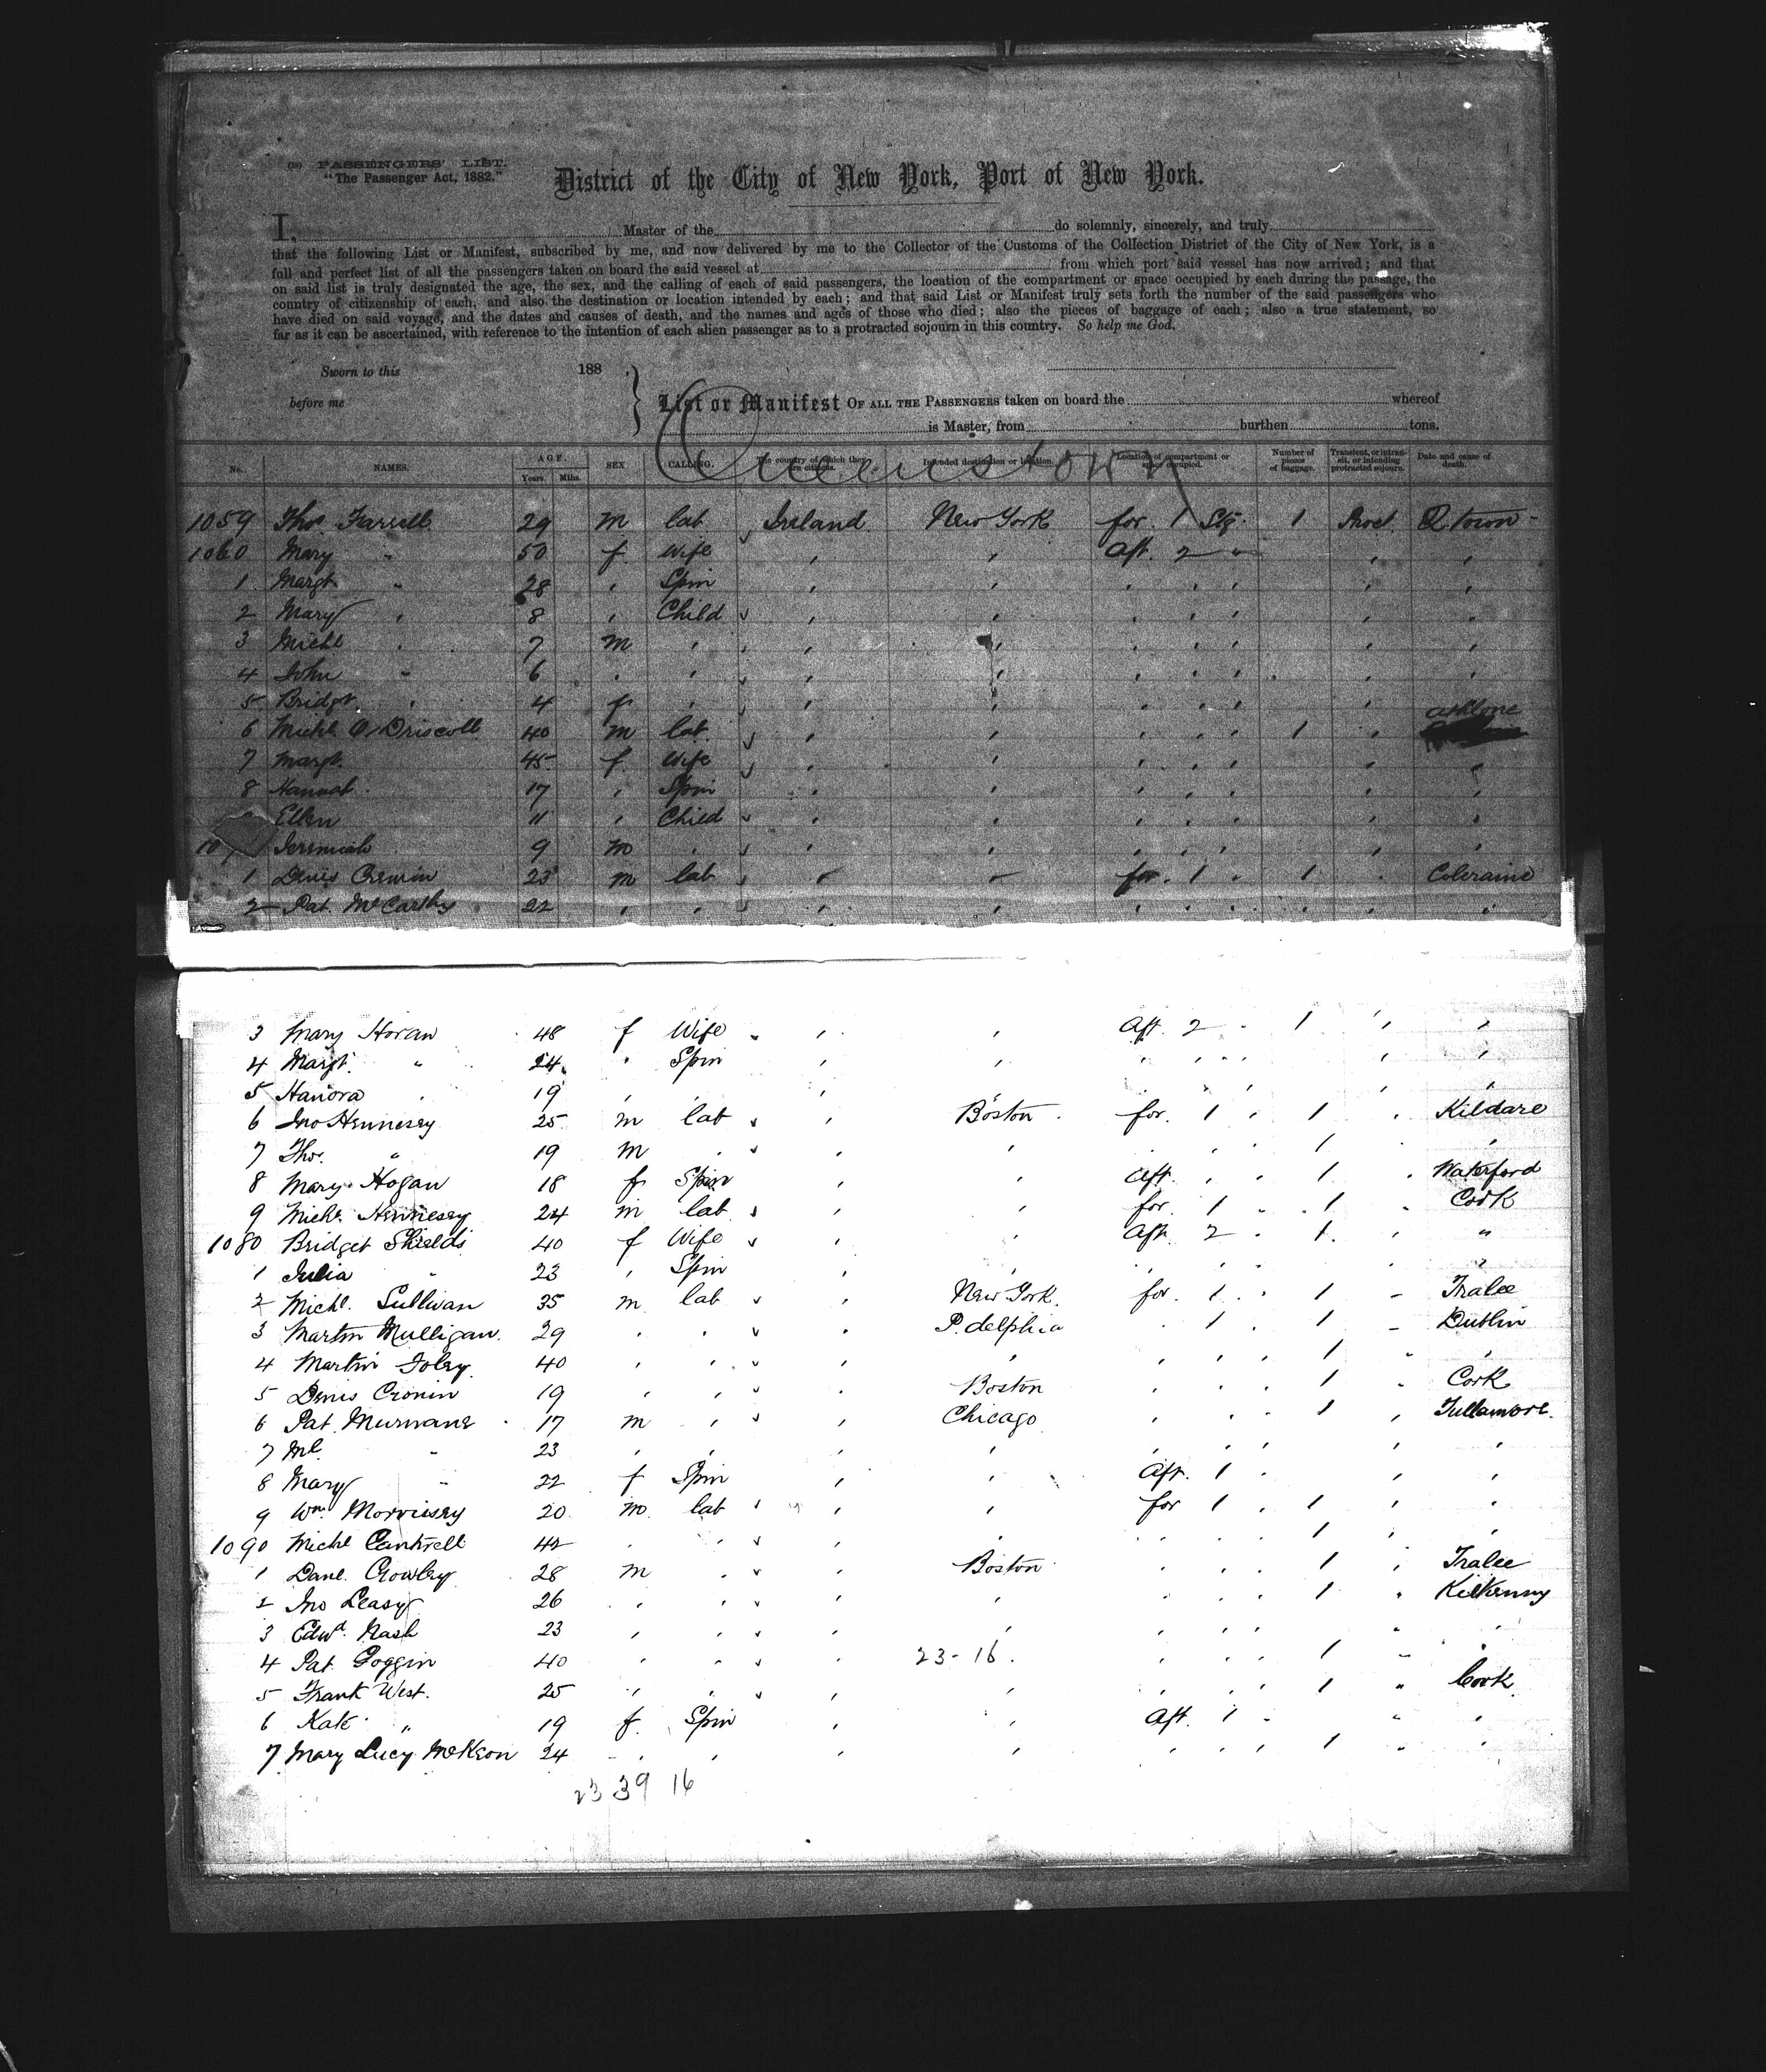 (39) PASSENGERS' LIST.
"The Passenger Act, 1882."
District of the City of New York, Port of New York.
I, Master of the do solemnly, sincerely, and truly
that the following List or Manifest, subscribed by me, and now delivered by me to the Collector of the Customs of the Collection District of the City of New York, is a
full and perfect list of all the passengers taken on board the said vessel at from which port said vessel has now arrived; and that
on said list is truly designated the age, the sex, and the calling of each of said passengers, the location of the compartment or space occupied by each during the passage, the
country of citizenship of each, and also the destination or location intended by each; and that said List or Manifest truly sets forth the number of the said passengers who
have died on said voyage, and the dates and causes of death, and the names and ages of those who died; also the pieces of baggage of each; also a true statement, so
far as it can be ascertained, with reference to the intention of each alien passenger as to a protracted sojourn in this country. So help me God.
Sworn to this 188
before me
List or Manifest OF ALL THE PASSENGERS taken on board the whereof
is Master, from burthen tons.
Queenstown
No. NAMES. AGE. Years. Mths. SEX CALLING. The country of which they are citizens. Intended destination or location. Location of compartment or space occupied. Number of pieces of baggage. Transient, or in transit, or intending protracted sojourn. Date and cause of death.
1059 Thos. Farrell 29 m lab Ireland New York for. 1 Stg. 1 Prot. Q. town
1060 Mary " 50 f Wife , , Aft. 2 " , ,
1 Margt " 28 , Spin , , , , , , ,
2 Mary , 8 , Child , , , , , , ,
3 Michl , 7 m , , , , , , , ,
4 John " 6 , , , , , , , , ,
5 Bridgt , 4 f , , , , , , ,
6 Michl O'Driscoll 40 m lab , , , , , 1 , Athlone
7 Margt. 45 f Wife , , , , , , ,
8 Hannah 17 , Spin , , , , , , ,
Ellen 11 , Child , , , , , , ,
10 Jeremiah 9 m , , , , , , , ,
1 Denis Cremin 23 m lab " " for. 1 " 1 , Coleraine
2 Pat. McCarthy 22 , , , , , , , , , ,
3 Mary Horan 48 f Wife , , Aft. 2 " 1 , ,
4 Margt. " 24 " Spin , , , , , , ,
5 Hanora , 19 , , , , , , , ,
6 Jno Hennesey 25 m lab , Boston for. 1 , 1 , Kildare
7 Thos. " 19 m , , , , , , 1 ,
8 Mary Hogan 18 f Spin , , Aft. , , 1 , Waterford
9 Michl. Hennesey 24 m lab , , for. 1 " 1 " Cork
1080 Bridget Shields 40 f Wife , , Aft. 2 " 1 , "
1 Julia " 23 , Spin , , , , , "
2 Michl. Sullivan 35 m lab , New York. for. 1 " 1 " Tralee
3 Martin Mulligan. 29 , , , P.delphia , 1 , 1 " Dublin
4 Martin Foley 40 , , , , , , , 1 " ,
5 Denis Cronin 19 , , , Boston , , , 1 " Cork
6 Pat. Murnane 17 m , , Chicago , , , 1 , Tullamore.
7 Ml. " 23 , , , , , , , , ,
8 Mary " 22 f Spin , , Aft. 1 , , ,
9 Wm. Morrissey 20 m lab , , for 1 , 1 , ,
1090 Michl Cantwell 42 , , , , , , , 1 , ,
1 Danl. Crowley 28 m , , Boston , , , 1 , Tralee
2 Jno Leasy 26 , , , , , , , 1 " Kilkenny
3 Edwd. Nash 23 , , , , , , , " ,
4 Pat. Goggin 40 , , , 23-16. , , , 1 " ,
5 Frank West. 25 , , , , , , , 1 " Cork.
6 Kate " 19 f Spin , , Aft. 1 " " ,
7 Mary Lucy McKeon 24 " , , , , , , , 1 " ,
23 39 16